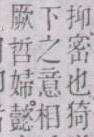 抑密也猗
下之意相
厥哲婦懿